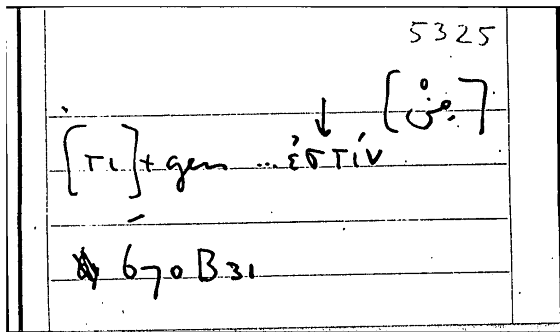 5325
[من]
[τι] + gen ... ἐστίν
670 B 31